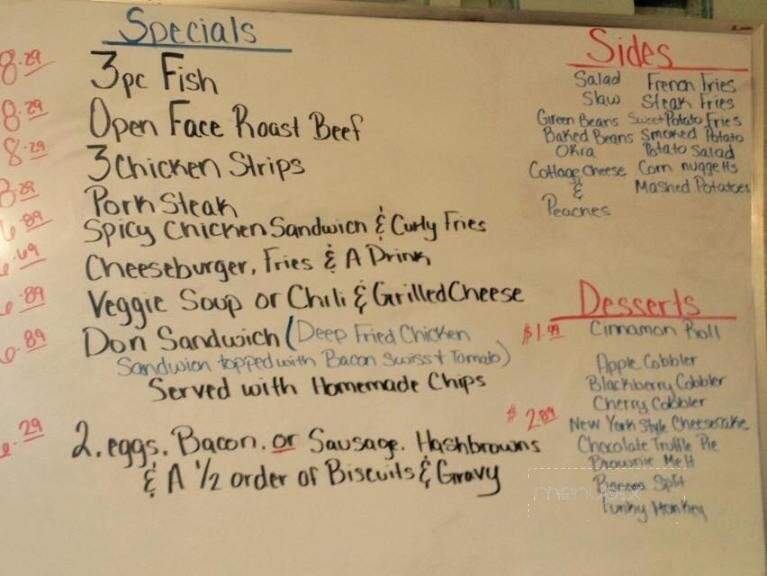 Specials
8.29 3pc Fish
8.29 Open Face Roast Beef
8.29 3 Chicken Strips
8.29 Pork Steak
6.89 Spicy Chicken Sandwich & Curly Fries
6.49 Cheeseburger, Fries & A Drink
6.89 Veggie Soup or Chili & Grilled Cheese
6.89 Don Sandwich (Deep Fried Chicken
Sandwich topped with Bacon Swiss & Tomato)
Served with Homemade Chips
.29 2. eggs. Bacon. or Sausage. Hashbrowns
& A 1/2 order of Biscuits & Gravy
Sides
Salad French Fries
Slaw Steak Fries
Green Beans Sweet Potato Fries
Baked Beans Smoked Potato
Okra Potato Salad
Cottage Cheese Corn nuggets
& Mashed Potatoes
Peaches
Desserts
$1.99 Cinnamon Roll
Apple Cobbler
Blackberry Cobbler
Cherry Cobbler
$2.89 New York Style Cheesecake
Chocolate Truffle Pie
Brownie Melt
Banana Split
Funky Monkey